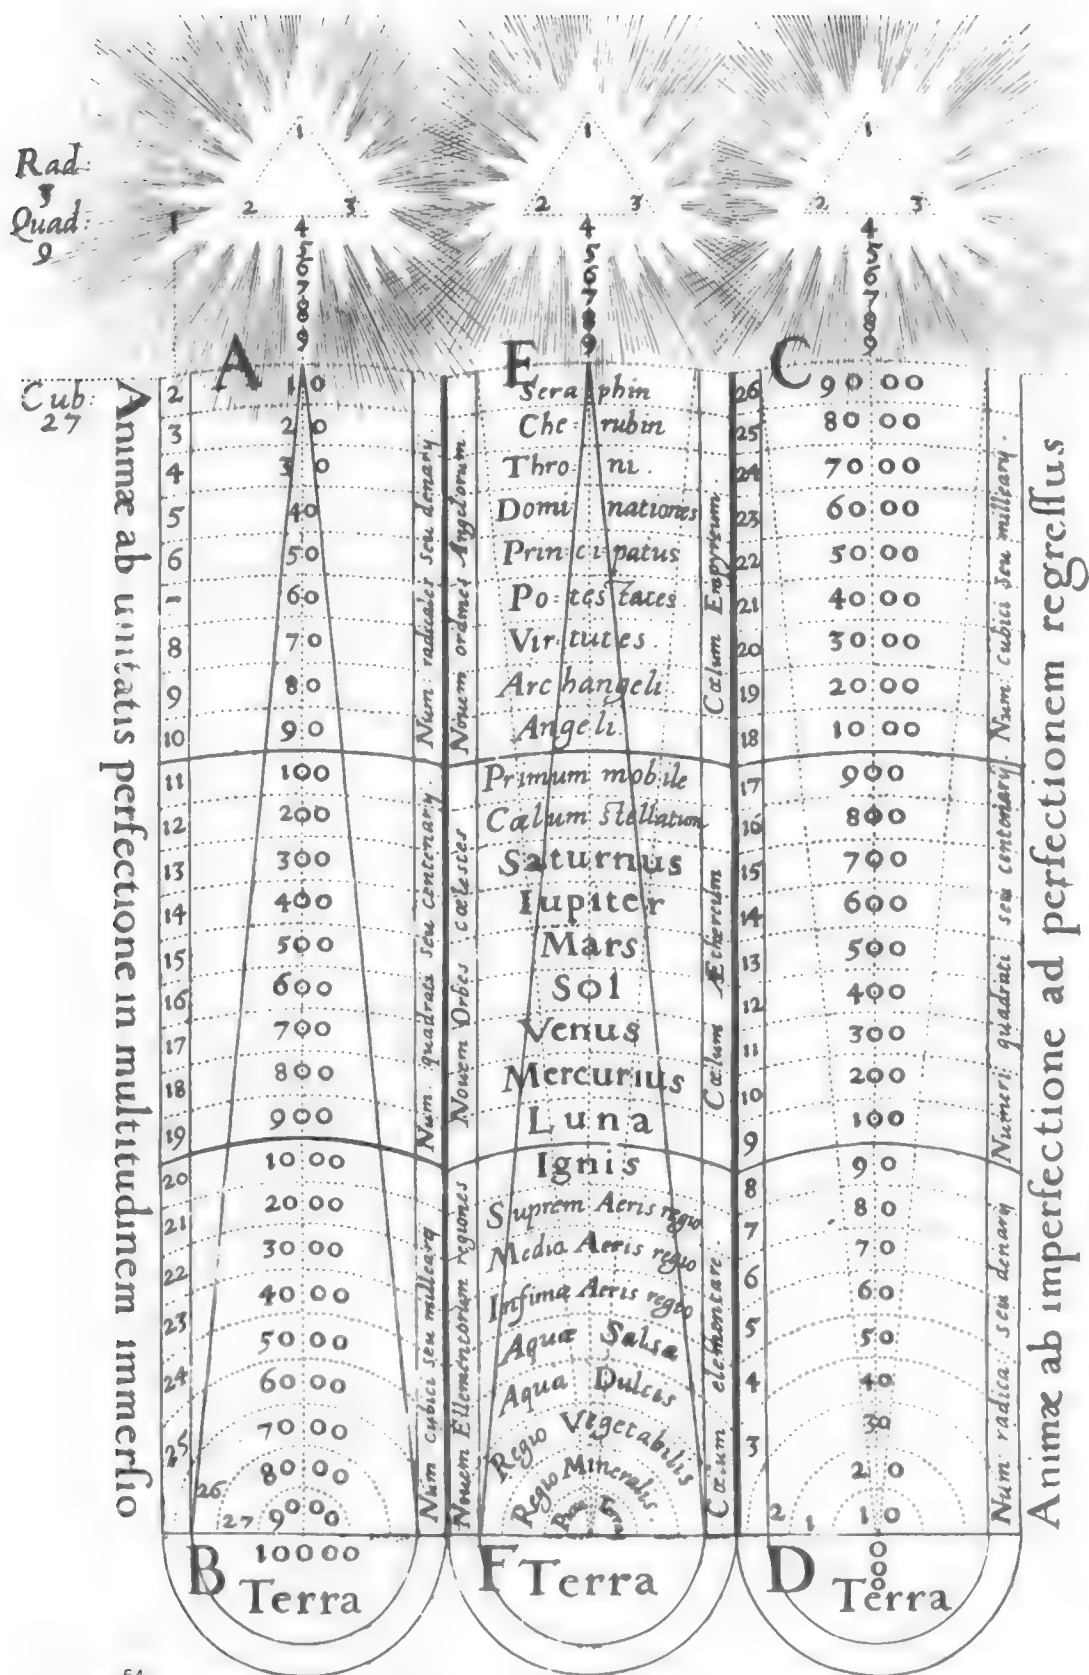 Rad:
3
Quad:
9
Cub:
27
Animæ ab unitatis perfectione in multitudinem immersio
1
2 3
4
5
6
7
8
9
A
1
2 10
3 20
4 30
5 40
6 50
- 60
8 70
9 80
10 90
11 100
12 200
13 300
14 400
15 500
16 600
17 700
18 800
19 900
20 1000
21 2000
22 3000
23 4000
24 5000
25 6000
7000
26 8000
27 9000
10000
B Terra
Num radicales seu denary
Num quadrati seu centenary
Num cubici seu milleary
1
2 3
4
5
6
7
8
9
E
Nouem ordines Angelorum
Nouem Orbes cælestes
Nouem Ellementorum regiones
Seraphin
Che: rubin
Thro: ni.
Domi nationes
Prin: ci: patus
Po: tes tates
Vir: tutes.
Archangeli
Angeli.
Primum mobile
Cœlum Stellatum
Saturnus
Iupiter
Mars
Sol
Venus
Mercurius
Luna
Ignis
Suprem Aeris regio
Media Aeris regio
Infima Aeris regio
Aquæ Salsa
Aqua Dulcis
Regio Vegetabilis
Regio Mineralis
F Terra
Cœlum Empyreum
Cœlum Æthereum
Cœlum elementare.
1
2 3
4
5
6
7
8
9
C
26 9000
25 8000
24 7000
23 6000
22 5000
21 4000
20 3000
19 2000
18 1000
17 900
16 800
15 700
14 600
13 500
12 400
11 300
10 200
9 100
8 90
7 80
6 70
5 60
4 50
3 40
30
2 20
1 10
0
0
0
D Terra
Num cubici seu milleary.
Numeri quadrati seu centenary.
Num radica: seu denary
Animæ ab imperfectione ad perfectionem regressus
54